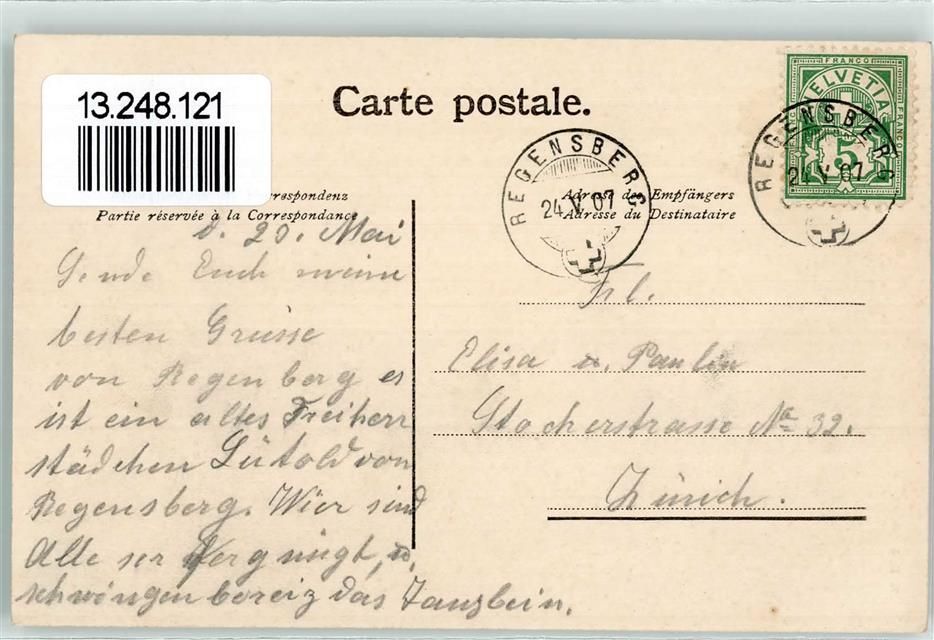 13.248.121
Carte postale.
FRANCO
HELVETIA
FRANCO
5
REGENSBERG
24.V.07
REGENSBERG
24.V.07
respondenz
Partie réservée à la Correspondance
Adresse des Empfängers
Adresse du Destinataire
d. 23. Mai
Sende Euch meine
besten Grüsse
von Regenberg es
ist ein altes Freiherr
städchen Lütold von
Regensberg. Wier sind
Alle ser Vergnügt, u.
schwingen bereiz das Tanzbein.
Frl.
Elisa u. Paulin
Stocherstrasse No 32.
Zürich.